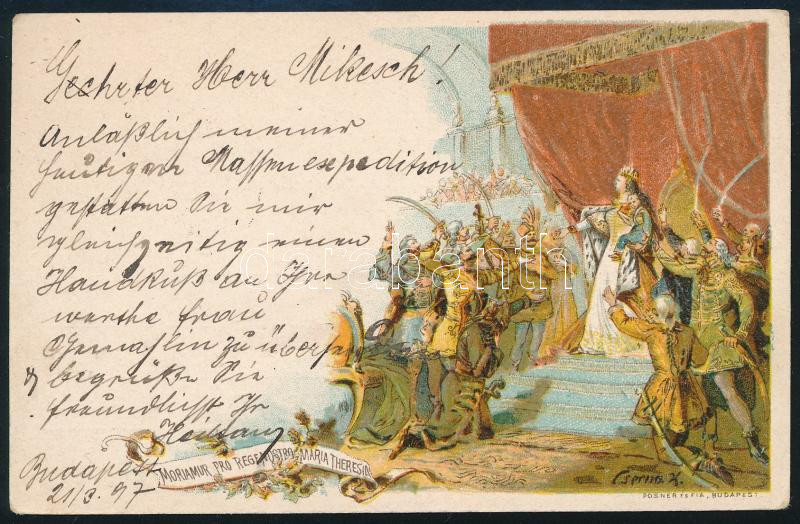 Geehrter Herr Mikesch!
Anläßlich meiner
heutigen Massenexpedition
gestatten Sie mir
gleichzeitig einen
Handkuß an Ihre
werthe Frau
Gemahlin zu
begrüße Sie
freundlichst Ihr
Budapest
21/3. 97
MORIAMUR PRO REGE NOSTRO MARIA THERESIA
Cserna K.
POSNER ÉS FIA, BUDAPEST.
darabanth